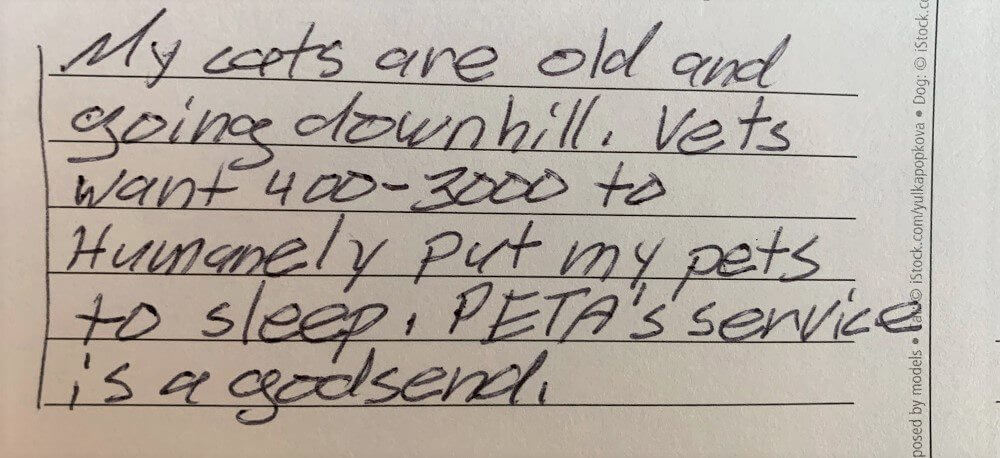 My cats are old and
going downhill. Vets
want 400-3000 to
Humanely put my pets
to sleep. PETA's service
is a godsend.
posed by models • © iStock.com/yulkapopkova • Dog: © iStock.c